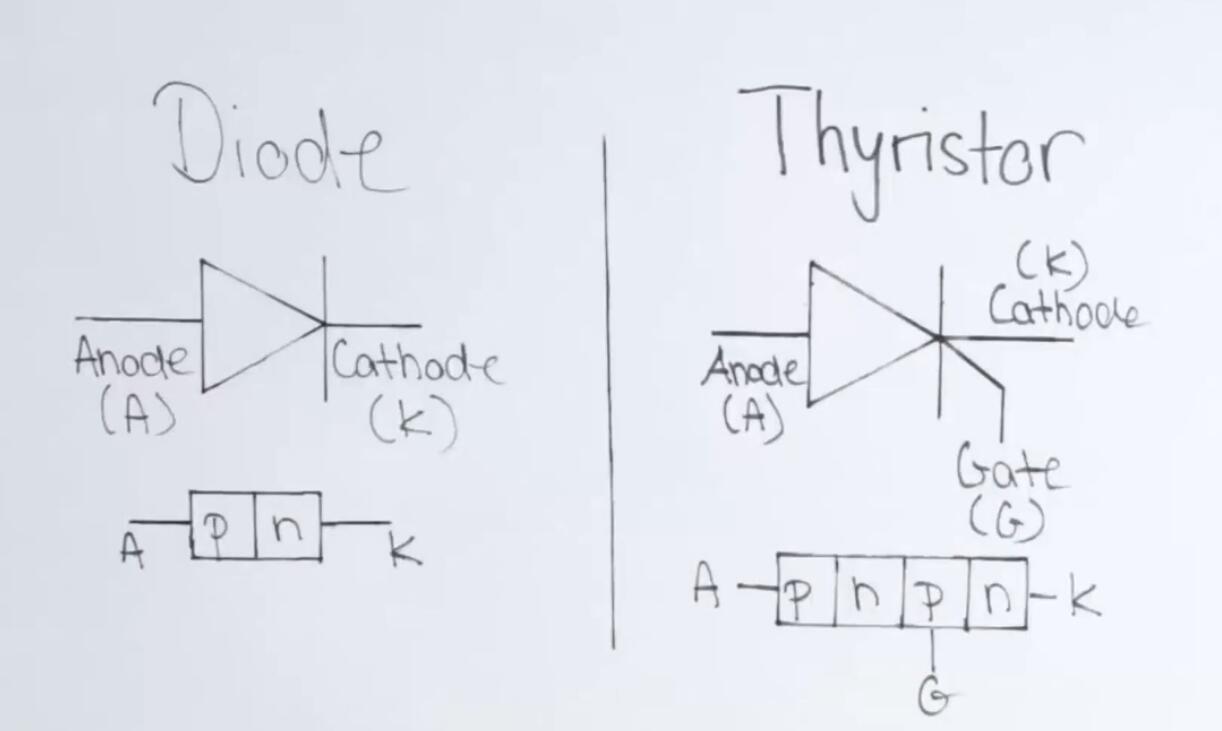 Diode
Anode
(A)
Cathode
(K)
A p n K
Thyristor
(K)
Cathode
Anode
(A)
Gate
(G)
A p n p n K
G